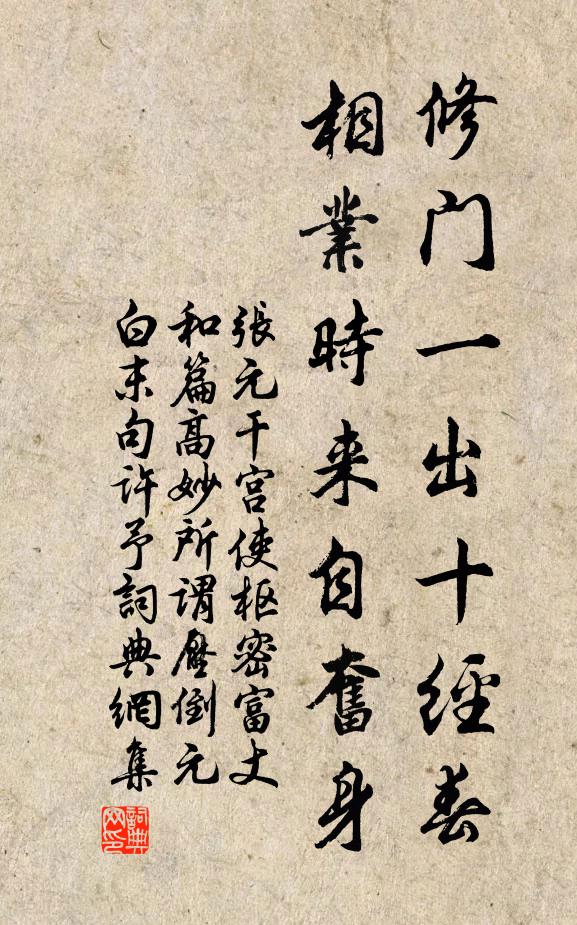 修门一出十經春
相業時来自奮身
張元干宫使枢密富丈
和篇高妙所谓壓倒元
白末句许予詞典網集
詞典
网印